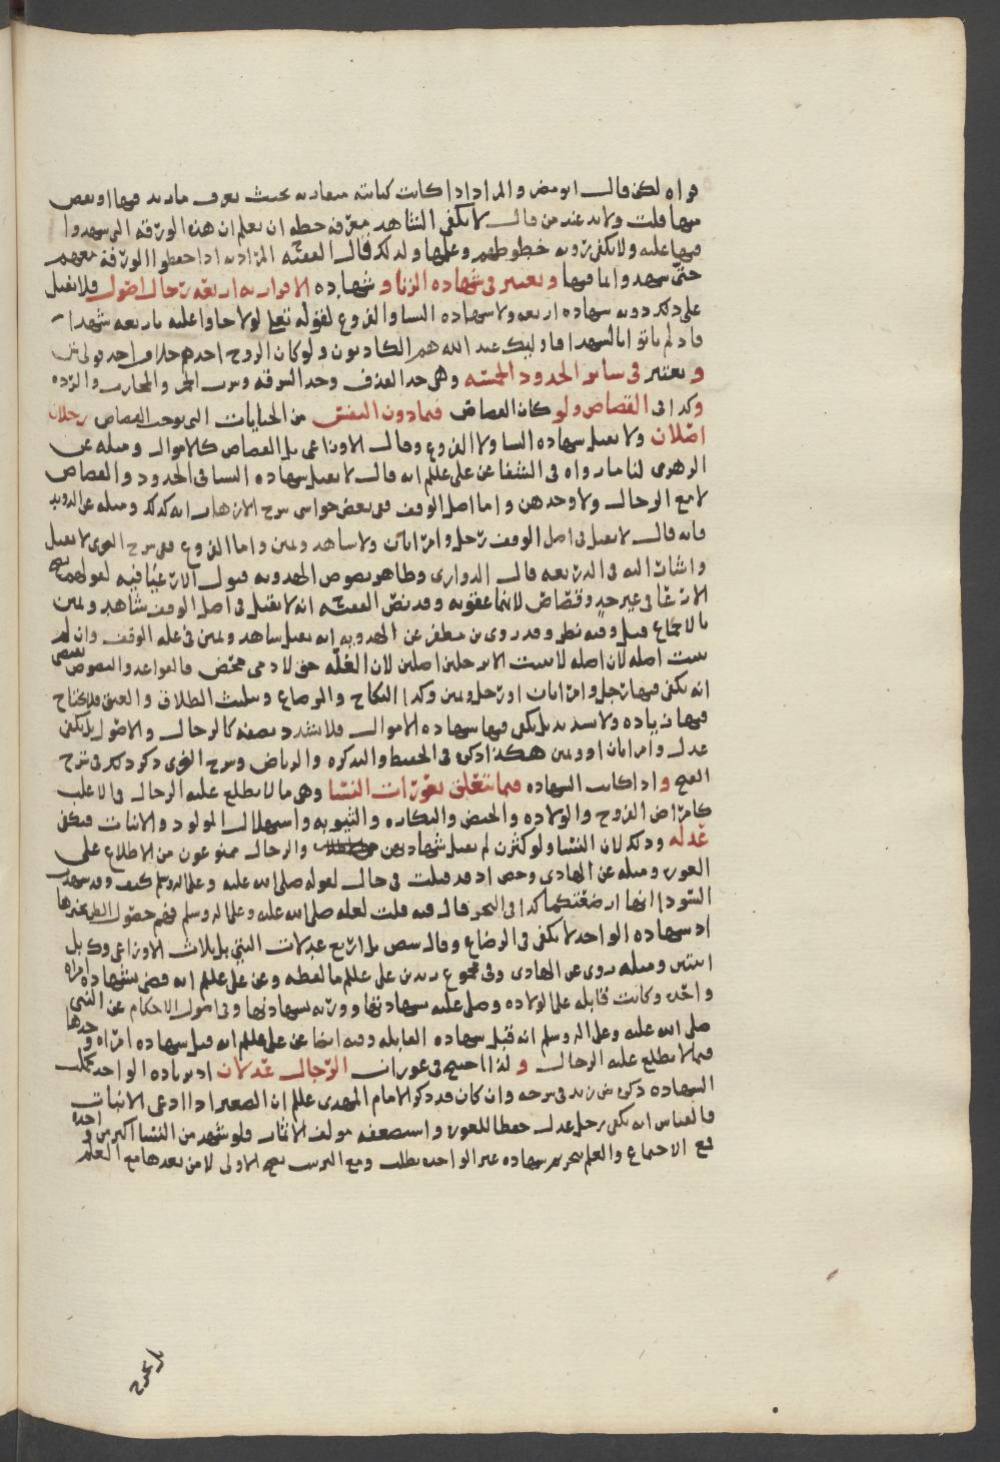 قراه لكن قال ابو مضر والمراد اذا كانت كتابته معتاده بحيث يعرف ما زيد فيها او نقص
منها قلت ولا بد عند من قال لا يكفي الشاهد معرفة خطه ان يعلم ان هذه الورقة التي شهدوا
فيها عليه ولا يكفي رؤية خطوطهم وعلمها ولذلك قال الفقيه المراد به اذا حفظوا الورقة معهم
حتى شهدوا بما فيها ويعتبر في شهاده الزنا و شهاده الاقرار به اربعه رجال اصول فلا يقبل
على ذلك دون شهاده اربعه ولا شهاده النسا والفروع لقوله تعالى لولا جاوا عليه باربعه شهدا
فاذ لم ياتوا بالشهدا فاوليك عند الله هم الكاذبون ولو كان الزوج احدهم خلاف احد قولي
ويعتبر في سائر الحدود الخمسه وهي حد القذف وحد السرقه وشرب الخمر والمحارب والرده
وكذا في القصاص ولو كان القصاص فيما دون النفس من الجنايات التي توجب القصاص رجلان
اصلان ولا يقبل شهاده النسا ولا الفروع وقال الاوزاعي بل القصاص كالاموال ومثله عن
الزهري لنا ما رواه في الشفا عن علي عليلم انه قال لا يقبل شهاده النسا في الحدود والقصاص
لا مع الرجال ولا وحدهن واما اصل الوقف ففي بعض حواشي شرح الازهار انه كذلك ومثله عن
فانه قال لا يقبل في اصل الوقف رجل وامراتان ولا شاهد ويمين واما الفروع ففي شرح لا يقبل
واشار اليه في الذريعه قال الدواري وظاهر نصوص الهدويه قبول الارعا فيه لقولهم يصح
الارعا في غير حد وقصاص لانها عقوبه وقد نص الفقيه انه لا يقبل في اصل الوقف شاهد ويمين
بالاجماع قيل وفيه نظر وقد روى بن مظفر عن الهدويه انه يقبل شاهد ويمين في غله الوقف وان لم
يثبت اصله لان اصله لا يثبت الا برجلين اصلين لان الغله حق لادمي محض فالقواعد والنصوص تقتضي
انه يكفي فيها رجل وامراتان او رجل ويمين وكذا النكاح والرضاع وتثليث الطلاق والعتق فلا يحتاج
فيها زياده ولا تشديد بل يكفي فيها شهاده الاموال فلا يتشدد بصفه كالرجال والاصول بل يكفي
عدل وامراتان او ويمين هكذا ذكره في الحفيظ والتذكره والرياض وشرح ذكر ذلك في شرح
الفتح واذا كانت الشهاده فيما يتعلق بعورات النسا وهي ما لا يطلع عليه الرجال في الاغلب
كامراض الفروج والولاده والحيض والبكاره والثيوبه واستهلال المولود والانبات فيكفي
عدله وذلك لان النسا ولو كثرن لم يقبل شهادتهن والرجال ممنوعون من الاطلاع على
العوره ومثله عن الهادي وخص اذ قد قبلت في حال لقوله صلى الله عليه وعلى اله وسلم كيف وقد شهدت
السودا انها ارضعتكما كذا في البحر قال فيه قلت لعله صلى الله عليه وعلى اله وسلم فهم حصول الظن بخبرها
اذ شهاده الواحد لا يكفي في الرضاع وقال بل اربع عدلات البتي بل بثلاث الاوزاعي وك بل
اثنتين ومثله روى عن الهادي وفي مجموع زيد بن علي عليلم ما لفظه وعن علي عليلم انه قضى بشهاده امراه
واحده وكانت قابله على الولاده وصلى عليه بشهادتها وورثه بشهادتها وفي اصول الاحكام عن النبي
صلى الله عليه وعلى اله وسلم انه قبل شهاده القابله وفيه ايضا عن علي عليلم انه قبل شهاده امراه وحدها
فيما لا يطلع عليه الرجال و لذا احتيج في عورات الرجال عدلان اذ بزياده الواحد تكمل
الشهاده ذكره ض زيد في شرحه وان كان قد ذكر الامام المهدي عليلم ان الصغير اذا ادعى الانبات
فالقياس انه يكفي رجل عدل حفظا للعوره واستضعفه مولف الاثمار فلو شهد من النسا اكثر من واحده
مع الاجتماع والعلم بتحريم شهاده غير الواحده بطلت ومع الترتيب يصح الاولى لا من بعدها مع العلم